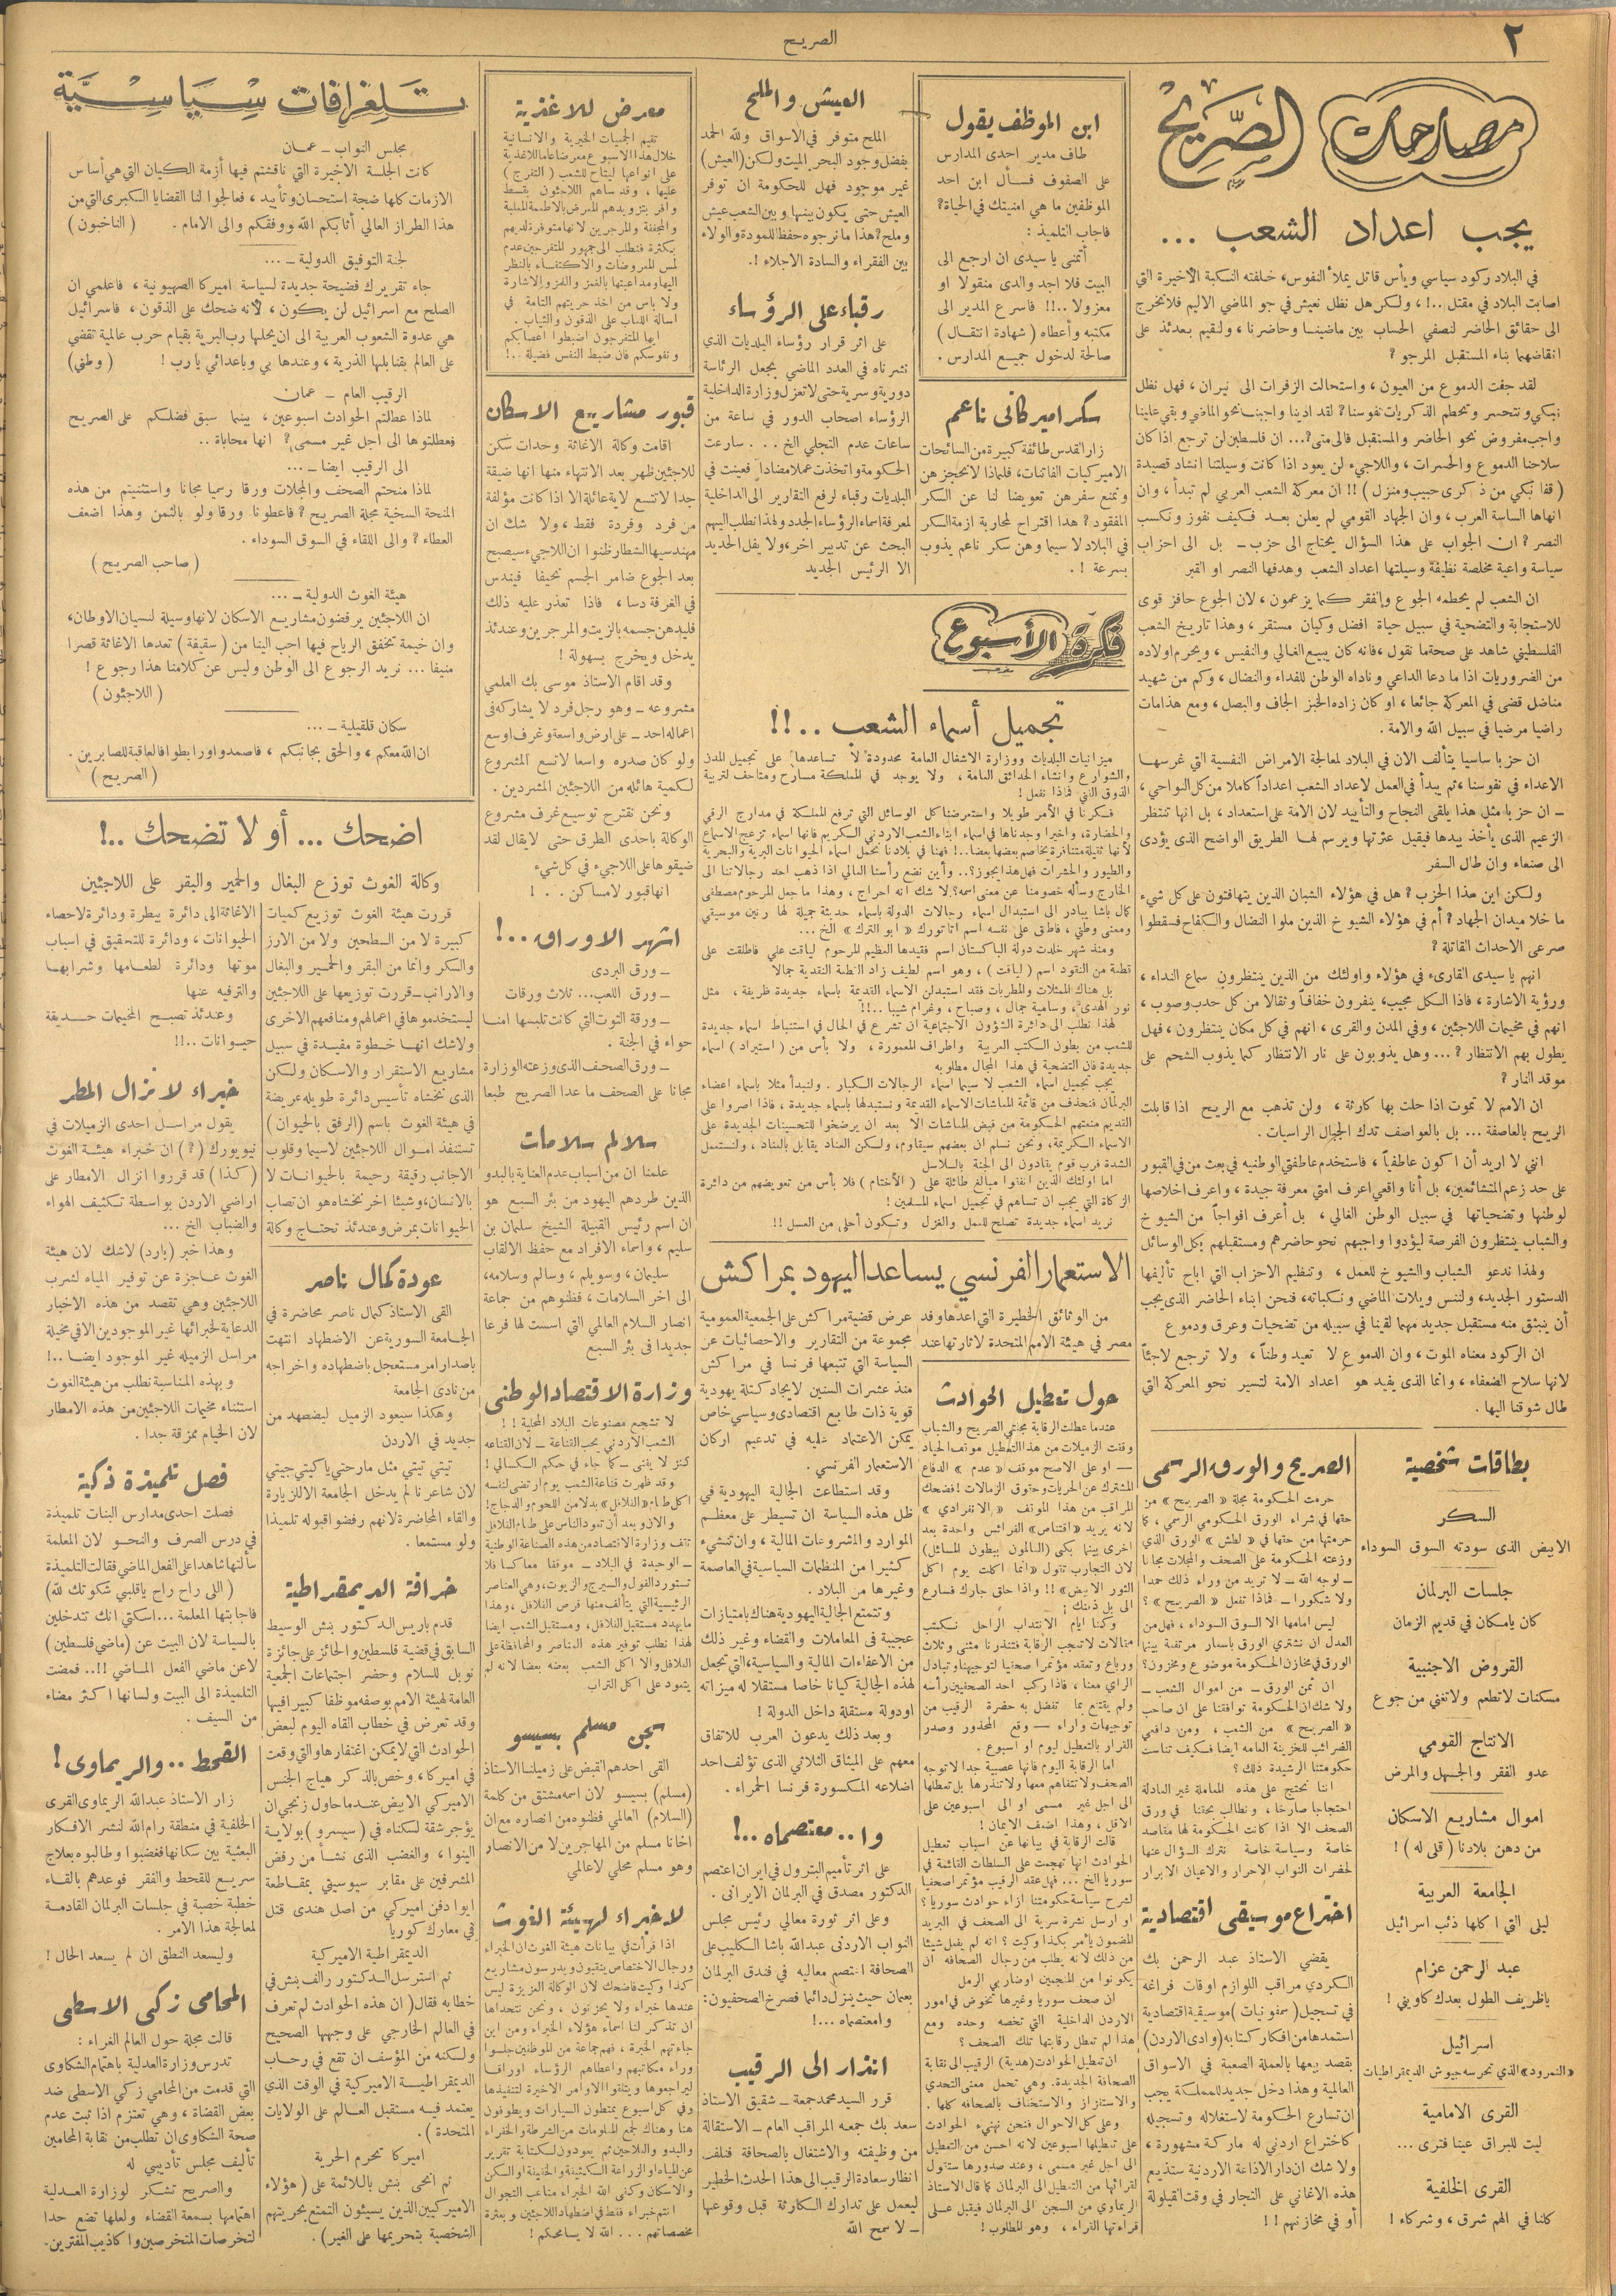 ٢
الصريح
مصارحات الصريح
يجب اعداد الشعب ...
في البلاد ركود سياسي ويأس قاتل يملأ النفوس، خلفته النكبة الأخيرة التي
اصابت البلاد في مقتل ..! ، ولكن هل نظل نعيش في جو الماضي الاليم فلا نخرج
الى حقائق الحاضر لنصفي الحساب بين ماضينا وحاضرنا ، ولنقيم بعدئذ على
انقاضهما بناء المستقبل المرجو ?
لقد جفت الدموع من العيون ، واستحالت الزفرات الى نيران ، فهل نظل
نبكي ونتحسر وتحطم الذكريات نفوسنا ? لقد ادينا واجبنا نحو الماضي وبقي علينا
واجب مفروض نحو الحاضر والمستقبل فالى متى ?... ان فلسطين لن ترجع اذا كان
سلاحنا الدموع والحسرات ، واللاجيء لن يعود اذا كانت وسيلتنا انشاد قصيدة
( قفا نبكي من ذكرى حبيب ومنزل ) !! ان معركة الشعب العربي لم تبدأ ، وان
انهاها الساسة العرب ، وان الجهاد القومي لم يعلن بعد فكيف نفوز ونكسب
النصر ? ان الجواب على هذا السؤال يحتاج الى حزب ــ بل الى احزاب
سياسة واعية مخلصة نظيفة وسيلتها اعداد الشعب وهدفها النصر او القبر
ان الشعب لم يحطمه الجوع والفقر كما يزعمون ، لان الجوع حافز قوى
للاستجابة والتضحية في سبيل حياة افضل وكيان مستقر ، وهذا تاريخ الشعب
الفلسطيني شاهد على صحة ما نقول ، فانه كان يبيع الغالي والنفيس ، ويحرم اولاده
من الضروريات اذا ما دعا الداعي وناداه الوطن للفداء والنضال ، وكم من شهيد
مناضل قضى في المعركة جائعا ، او كان زاده الخبز الجاف والبصل ، ومع هذا مات
راضيا مرضيا في سبيل الله والامة .
ان حزبا ساسيا يتألف الان في البلاد لمعالجة الامراض النفسية التي غرسها
الاعداء في نفوسنا ، ثم يبدأ في العمل لاعداد الشعب اعداداً كاملا من كل النواحي ،
ــ ان حزبا مثل هذا يلقى النجاح والتأييد لان الامة على استعداد ، بل انها تنتظر
الزعيم الذى يأخذ بيدها فيقيل عثرتها ويرسم لها الطريق الواضح الذى يؤدى
الى صنعاء وان طال السفر
ولكن اين هذا الحزب ? هل في هؤلاء الشبان الذين يتهافتون على كل شيء
ما خلا ميدان الجهاد ? أم في هؤلاء الشيوخ الذين ملوا النضال والكفاح فسقطوا
صرعى الاحداث القاتلة ?
انهم يا سيدى القارىء في هؤلاء واولئك من الذين ينتظرون سماع النداء ،
ورؤية الاشارة ، فاذا الكل مجيب، ينفرون خفافاً وثقالا من كل حدب وصوب ،
انهم في مخيمات اللاجئين ، وفي المدن والقرى ، انهم في كل مكان ينتظرون ، فهل
يطول بهم الانتظار ? ... وهل يذوبون على نار الانتظار كما يذوب الشحم على
موقد النار ?
ان الامم لا تموت اذا حلت بها كارثة ، ولن تذهب مع الريح اذا قابلت
الريح بالعاصفة ... بل بالعواصف تدك الجبال الراسيات .
انني لا اريد أن اكون عاطفياً ، فاستخدم عاطفتي الوطنيه في بعث من في القبور
على حد زعم المتشائمين، بل أنا واقعي اعرف امتي معرفة جيدة ، واعرف اخلاصها
لوطنها وتضحياتها في سبيل الوطن الغالي ، بل أعرف افواجاً من الشيوخ
والشباب ينتظرون الفرصة ليؤدوا واجبهم نحو حاضرهم ومستقبلهم بكل الوسائل
ولهذا ندعو الشباب والشيوخ للعمل ، وتنظيم الاحزاب التي اباح تأليفها
الدستور الجديد، ولننس ويلات الماضي ونكباته، فنحن ابناء الحاضر الذى يجب
أن ينبثق منه مستقبل جديد مهما لقينا في سبيله من تضحيات وعرق ودموع
ان الركود معناه الموت ، وان الدموع لا تعيد وطناً ، ولا ترجع لاجئاً
لانها سلاح الضعفاء ، وانما الذى يفيد هو اعداد الامة لتسير نحو المعركة التي
طال شوقنا اليها .
بطاقات شخصية
السكر
الابيض الذى سودته السوق السوداء
جلسات البرلمان
كان يا مكان في قديم الزمان
القروض الاجنبية
مسكنات لا تطعم ولا تغني من جوع
الانتاج القومي
عدو الفقر والجهل والمرض
اموال مشاريع الاسكان
من دهن بلادنا ( قلى له ) !
الجامعة العربية
ليلى التي اكلها ذئب اسرائيل
عبد الرحمن عزام
يا ظريف الطول بعدك كاويني !
اسرائيل
«النمرود» الذي تحرسه جيوش الديمقراطيات
القرى الامامية
ليت للبراق عينا فترى ...
القرى الخلفية
كلنا في الهم شرق ، وشركاء !
الصريح والورق الرسمى
حرمت الحكومة مجلة «الصريح» من
حقها في شراء الورق الحكومي الرسمي ، كما
حرمتها من حقها في «لطش» الورق الذي
وزعته الحكومة على الصحف والمجلات مجانا
ــ لوجه الله ــ لا تريد من وراء ذلك حمدا
ولا شكورا ــ فماذا تفعل «الصريح» ?
ليس امامها الا السوق السوداء ، فهل من
العدل ان نشتري الورق باسعار مرتفعة بينما
الورق في مخازن الحكومة موضوع ومخزون?
ان ثمن الورق ــ من اموال الشعب ــ
ولا شك ان الحكومة توافقنا على ان صاحب
«الصريح» من الشعب ، ومن دافعي
الضرائب للخزينة العامه ايضا فكيف تناست
حكومتنا الرشيدة ذلك ?
اننا نحتج على هذه المعاملة غير العادلة
احتجاجا صارخا ، ونطالب بحقنا في ورق
الصحف الا اذا كانت الحكومة لها مقاصد
خاصة وسياسة خاصة نترك السؤال عنها
لحضرات النواب الاحرار والاعيان الابرار
اختراع موسيقى اقتصادية
يقضي الاستاذ عبد الرحمن بك
الكردي مراقب اللوازم اوقات فراغه
في تسجيل ( سمفونيات ) موسيقية اقتصادية
استمدها من افكار كتابه (وادى الاردن)
بقصد بيعها بالعملة الصعبة في الاسواق
العالمية وهذا دخل جديد للمملكة يجب
ان تسارع الحكومة لاستغلاله وتسجيله
كاختراع اردني له ماركة مشهورة ،
ولا شك ان دار الاذاعة الاردنية ستذيع
هذه الاغاني على التجار في وقت القيلولة
أو في مخازنهم !!
ابن الموظف يقول
طاف مدير احدى المدارس
على الصفوف فسأل ابن احد
الموظفين ما هي امنيتك في الحياة؟
فاجاب التلميذ :
أتمنى يا سيدى ان ارجع الى
البيت فلا اجد والدى منقولا او
معزولا ..!! فاسرع المدير الى
مكتبه وأعطاه ( شهادة انتقال )
صالحة لدخول جميع المدارس .
سكر اميركانى ناعم
زار القدس طائفة كبيرة من السائحات
الاميركيات الفاتنات، فلماذا لا نحجز هن
ونمنع سفرهن تعويضا لنا عن السكر
المفقود ? هذا اقتراح لمحاربة ازمة السكر
في البلاد لا سيما وهن سكر ناعم يذوب
بسرعة ! .
العيش والملح
الملح متوفر في الاسواق ولله الحمد
بفضل وجود البحر الميت ولكن (العيش)
غير موجود فهل للحكومة ان توفر
العيش حتى يكون بينها وبين الشعب عيش
وملح? هذا ما نرجوه حفظ للمودة والولاء
بين الفقراء والسادة الاجلاء !.
رقباء على الرؤساء
على اثر قرار رؤساء البلديات الذي
نشرناه في العدد الماضي بجعل الرئاسة
دورية وسرية حتى لا تعزل وزارة الداخلية
الرؤساء اصحاب الدور في ساعة من
ساعات عدم التجلي الخ ... سارعت
الحكومة واتخذت عملا مضاداً فعينت في
البلديات رقباء لرفع التقارير الى الداخلية
لمعرفة اسماء الرؤساء الجدد ولهذا نطلب اليهم
البحث عن تدبير اخر، ولا يفل الحديد
الا الرئيس الجديد
فكرة الأسبوع
تجميل أسماء الشعب ..!!
ميزانيات البلديات ووزارة الاشغال العامة محدودة لا تساعدها على تجميل المدن
والشوارع وانشاء الحدائق العامة ، ولا يوجد في المملكة مسارح ومتاحف لتربية
الذوق الفني فماذا نفعل !
فكرنا في الأمر طويلا واستعرضنا كل الوسائل التي ترفع المملكة في مدارج الرقي
والحضارة، واخيرا وجدناها في اسماء ابناء الشعب الاردني الكريم فانها اسماء تزعج الاسماع
لأنها ثقيلة متنافرة يخاصم بعضها بعضا ..! فهنا في بلادنا نحمل اسماء الحيوانات البرية والبحرية
والطيور والحشرات فهل هذا يجوز؟.. وأين نضع رأسنا العالي اذا ذهب احد رجالاتنا الى
الخارج وسأله خصومنا عن معنى اسمه? لا شك انه احراج ، وهذا ما جعل المرحوم مصطفى
كمال باشا يبادر الى استبدال اسماء رجالات الدولة باسماء حديثة جميلة لها رنين موسيقي
ومعنى وطني ، فاطلق على نفسه اسم اتاتورك «ابو الترك» الخ ...
ومنذ شهر خلدت دولة الباكستان اسم فقيدها العظيم المرحوم لياقت علي فاطلقت على
قطعة من النقود اسم ( لياقت ) ، وهو اسم لطيف زاد القطعة النقدية جمالا
بل هناك الممثلات والمطربات فقد استبدلن الاسماء القديمة باسماء جديدة ظريفة ، مثل
نور الهدى ، وسامية جمال ، وصباح ، وغرام شيبا ..!!
لهذا نطلب الى دائرة الشؤون الاجتماعية ان تشرع في الحال في استنباط اسماء جديدة
للشعب من بطون الكتب العربية واطراف المعمورة ، ولا بأس من ( استيراد ) اسماء
جديدة فان التضحية في هذا المجال مطلوبه
يجب تجميل اسماء الشعب لا سيما اسماء الرجالات الكبار . ولنبدأ مثلا باسماء اعضاء
البرلمان فنحذف من قائمة المعاشات الاسماء القديمة ونستبدلها باسماء جديدة ، فاذا اصروا على
القديم منعتهم الحكومة من قبض المعاشات الا بعد ان يرضخوا للتحسينات الجديدة على
الاسماء الكريمة، ونحن نسلم ان بعضهم سيقاوم، ولكن العناد يقابل بالعناد ، ولنستعمل
الشدة فرب قوم يقادون الى الجنة بالسلاسل
اما اولئك الذين انفقوا مبالغ طائلة على ( الأختام ) فلا بأس من تعويضهم من دائرة
الزكاة التي يجب ان تساهم في تجميل اسماء المسلمين !
نريد اسماء جديدة تصلح للعمل والغزل وتكون أحلى من العسل !!
الاستعمار الفرنسي يساعد اليهود بمراكش
من الوثائق الخطيرة التي اعدها وفد
مصر في هيئة الامم المتحدة لاثارتها عند
عرض قضية مراكش على الجمعية العمومية
مجموعة من التقارير والاحصائيات عن
السياسة التي تتبعها فرنسا في مراكش
منذ عشرات السنين لايجاد كتلة يهودية
قوية ذات طابع اقتصادى وسياسي خاص
يمكن الاعتماد عليه في تدعيم اركان
الاستعمار الفرنسي .
وقد استطاعت الجالية اليهودية في
ظل هذه السياسة ان تسيطر على معظم
الموارد والمشروعات المالية ، وان تنشيء
كثيرا من المنظمات السياسية في العاصمة
وغيرها من البلاد .
وتتمتع الجالية اليهودية هناك بامتيازات
عجيبة في المعاملات والقضاء وغير ذلك
من الاعفاءات المالية والسياسية، التي تجعل
لهذه الجالية كيانا خاصا مستقلا له ميزاته
او دولة مستقلة داخل الدولة !
وبعد ذلك يدعون العرب للاتفاق
معهم على الميثاق الثلاثي الذى تؤلف احد
اضلاعه المكسورة فرنسا الحمراء .
حول تعطيل الحوادث
عندما عطلت الرقابة مجلتي الصريح والشباب
وقفت الزميلات من هذا التعطيل موقف الحياد
ــ او على الاصح موقف « عدم » الدفاع
المشترك عن الحريات وحقوق الزمالات ! فضحك
المراقب من هذا الموقف « الانفرادي »
لانه يريد «اقتناص» الفرائس واحدة بعد
اخرى بينما بكى (العاملون ببطون المسائل)
لان التجارب تقول «انما اكلت يوم اكل
الثور الابيض» !! واذا حلق جارك فسارع
الى بل ذقنك :
وكنا ايام الانتداب الراحل نكتب
مقالات لا تعجب الرقابة فتنذرنا مثنى وثلاث
ورباع وتعقد مؤتمرا صحفيا لتوجيهنا وتبادل
الراي معنا ، فاذا ركب احد الصحفيين رأسه
ولم يقتنع بما تفضل به حضرة الرقيب من
توجيهات واراء ــ وقع المحذور وصدر
القرار بالتعطيل ليوم او اسبوع .
اما الرقابة اليوم فانها عصبية جدا لا توجه
الصحف ولا تتفاهم معها ولا تنذرها بل تعطلها
الى اجل غير مسمى او الى اسبوعين على
الاقل ، وهذا اضعف الايمان !
قالت الرقابة في بيانها عن اسباب تعطيل
الحوادث انها تهجمت على السلطات القائمة في
سوريا الخ ... فهل عقد الرقيب مؤتمرا صحفيا
لشرح سياسة حكومتنا ازاء حوادث سوريا ?
او ارسل نشرة سرية الى الصحف في البريد
المضمون يأمر بكذا وكيت ? انه لم يفعل شيئا
من ذلك لانه يطلب من رجال الصحافه ان
يكونوا من المنجمين او ضاربي الرمل
ان صحف سوريا وغيرها تخوض في امور
الاردن الداخلية التي تخصه وحده ومع
هذا لم تعطل رقابتها تلك الصحف ?
ان تعطيل الحوادث (هدية) الرقيب الى نقابة
الصحافة الجديدة. وهي تحمل معنى التحدي
والاستفزاز والاستخفاف بالصحافه كلها .
وعلى كل الاحوال فنحن نهنيء الحوادث
على تعطيلها اسبوعين لانه احسن من التعطيل
الى اجل غير مسمى ، وعند صدورها ستقول
لقرائها من التعطيل الى البرلمان كما قال الاستاذ
الريماوي من السجن الى البرلمان فيقبل على
قراءتها القراء ، وهو المطلوب !
وا .. معتصماه ..!
على اثر تأميم البترول في ايران اعتصم
الدكتور مصدق في البرلمان الايرانى .
وعلى اثر ثورة معالي رئيس مجلس
النواب الاردنى عبد الله باشا الكليب على
الصحافة اعتصم معاليه في فندق البرلمان
بعمان حيث ينزل دائما فصرخ الصحفيون :
وامعتصماه ...!
انذار الى الرقيب
قرر السيد محمد جمعة ــ شقيق الاستاذ
سعد بك جمعه المراقب العام ــ الاستقالة
من وظيفته والاشتغال بالصحافة فنلفت
انظار سعادة الرقيب الى هذا الحدث الخطير
ليعمل على تدارك الكارثة قبل وقوعها
ــ لا سمح الله
معرض للاغذية
تقيم الجمعيات الخيرية والانسانية
خلال هذا الاسبوع معرضا عاما للاغذية
على انواعها ليتاح للشعب ( التفرج )
عليها ، وقد ساهم اللاجئون بقسط
وافر بتزويدهم المعرض بالاطعمة المعلبة
والمجففة والمرجرين لانها متوفرة لديهم
بكثرة فنطلب الى جمهور المتفرجين عدم
لمس المعروضات والاكتفاء بالنظر
اليها ومداعبتها بالغمز والهمز والاشارة
ولا باس من اخذ حريتهم التامة في
اسالة اللعاب على الذقون والثياب .
ايها المتفرجون اضبطوا اعصابكم
ونفوسكم فان ضبط النفس فضيلة ..!
قبور مشاريع الاسكان
اقامت وكالة الاغاثة وحدات سكن
للاجئين ظهر بعد الانتهاء منها انها ضيقة
جدا لا تتسع لاية عائلة الا اذا كانت مؤلفة
من فرد وفردة فقط ، ولا شك ان
مهندسيها الشطار ظنوا ان اللاجيء سيصبح
بعد الجوع ضامر الجسم نحيفا فيندس
في الغرفة دسا ، فاذا تعذر عليه ذلك
فليدهن جسمه بالزيت والمرجرين وعندئذ
يدخل ويخرج بسهولة !
وقد اقام الاستاذ موسى بك العلمي
مشروعه ــ وهو رجل فرد لا يشاركه في
اعماله احد ــ على ارض واسعة وغرف اوسع
ولو كان صدره واسعا لاتسع المشروع
لكمية هائله من اللاجئين المشردين .
ونحن نقترح توسيع غرف مشروع
الوكالة باحدى الطرق حتى لا يقال لقد
ضيقوها على اللاجيء في كل شيء
انها قبور لا مساكن . . !
اشهر الاوراق ..!
ــ ورق البردى
ــ ورق اللعب ... ثلاث ورقات
ــ ورقة التوت التي كانت تلبسها امنا
حواء في الجنة .
ــ ورق الصحف الذى وزعته الوزارة
مجانا على الصحف ما عدا الصريح طبعا
سلالم سلامات
علمنا ان من اسباب عدم العناية بالبدو
الذين طردهم اليهود من بئر السبع هو
ان اسم رئيس القبيلة الشيخ سلمان بن
سليم ، واسماء الافراد مع حفظ الالقاب
سليمان ، وسويلم ، وسالم وسلامه ،
الى اخر السلامات ، فظنوهم من جماعة
انصار السلام العالمي التي اسست لها فرعا
جديدا في بئر السبع
وزارة الاقتصاد الوطنى
لا تشجع مصنوعات البلاد المحلية !!
الشعب الاردني يحب القناعة ــ لان القناعه
كنز لا يفنى ــ كما جاء في حكم الكسالي !
وقد ظهرت قناعة الشعب يوم ارتضى لنفسه
اكل طعام «الفلافل» بدلا من اللحوم والدجاج!
والان وبعد أن تعود الناس على طعام الفلافل
تقف وزارة الاقتصاد من هذه الصناعة الوطنية
ــ الوحيدة في البلاد ــ موقفا معاكسا فلا
تستورد الفول والسيرج والزيوت، وهي العناصر
الرئيسية التي يتألف منها قرص الفلافل ، وهذا
ما يهدد مستقبل الفلافل، ومستقبل الشعب ايضا
لهذا نطلب توفير هذه العناصر والمحافظة على
الفلافل والا اكل الشعب بعضه بعضا لانه لم
يتعود على اكل التراب
سجن مسلم بسيسو
القى احدهم القبض على زميلنا الاستاذ
(مسلم) بسيسو لان اسمه مشتق من كلمة
(السلام) العالمي فظنوه من انصاره مع ان
اخانا مسلم من المهاجرين لا من الانصار
وهو مسلم محلي لا عالمي
لا خبراء لهيئة الغوث
اذا قرأت في بيانات هيئة الغوث ان الخبراء
ورجال الاختصاص ينقبون ويدرسون مشاريع
كذا وكيت فاضحك لان الوكالة العزيزة ليس
عندها خبراء ولا يحزنون ، ونحن نتحداها
ان تذكر لنا اسماء هؤلاء الخبراء ومن اين
جاءتهم الخبرة ، فهم جماعة من الموظفين جلسوا
وراء مكاتبهم واعطاهم الرؤساء اوراقا
ليراجعوها ويتلقوا الاوامر الاخيرة لتنفيذها
وفي كل اسبوع يمتطون السيارات ويطوفون
هنا وهناك لجمع المعلومات من الشرطة والخفراء
والبدو والفلاحين ثم يعودون لكتابة تقرير
عن المياه او الزراعة الكثيفة والخفيفة او السكن
والاسكان وكفى الله الخبراء متاعب التجوال
انتم خبراء فقط في اضطهاد اللاجئين وبعثرة
مخصصاتهم ... الله لا يسامحكم !
تلغرافات سياسية
مجلس النواب ــ عمان
كانت الجلسة الاخيرة التي ناقشتم فيها أزمة الكيان التي هي أساس
الازمات كلها ضجة استحسان وتأييد ، فعالجوا لنا القضايا الكبرى التي من
هذا الطراز العالي أثابكم الله ووفقكم والى الامام . ( الناخبون )
لجنة التوفيق الدولية ــ ...
جاء تقريرك فضيحة جديدة لسياسة اميركا الصهيونية ، فاعلمي ان
الصلح مع اسرائيل لن يكون ، لأنه ضحك على الذقون ، فاسرائيل
هي عدوة الشعوب العربية الى ان يحلها رب البرية بقيام حرب عالمية تقضي
على العالم بقنابلها الذرية ، وعندها بي وباعدائي يارب ! (وطني)
الرقيب العام ــ عمان
لماذا عطلتم الحوادث اسبوعين ، بينما سبق فضلكم على الصريح
فعطلتوها الى اجل غير مسمى ? انها محاباة ..
الى الرقيب ايضا ــ ...
لماذا منحتم الصحف والمجلات ورقا رسميا مجانا واستثنيتم من هذه
المنحة السخية مجلة الصريح ? فاعطونا ورقا ولو بالثمن وهذا اضعف
العطاء ? والى اللقاء في السوق السوداء .
( صاحب الصريح )
هيئة الغوث الدولية ــ ...
ان اللاجئين يرفضون مشاريع الاسكان لانها وسيلة لنسيان الاوطان،
وان خيمة تخفق الرياح فيها احب الينا من ( سقيفة ) تعدها الاغاثة قصرا
منيفا ... نريد الرجوع الى الوطن وليس عن كلامنا هذا رجوع !
( اللاجئون )
سكان قلقيلية ــ ...
ان الله معكم ، والحق بجانبكم ، فاصمدوا ورابطوا فالعاقبة للصابرين .
( الصريح )
اضحك ... أو لا تضحك ..!
وكالة الغوث توزع البغال والحمير والبقر على اللاجئين
قررت هيئة الغوث توزيع كميات
كبيرة لا من الطحين ولا من الارز
والسكر وانما من البقر والحمير والبغال
والارانب ــ قررت توزيعها على اللاجئين
ليستخدموها في اعمالهم ومنافعهم الاخرى
ولا شك انها خطوة مفيدة في سبيل
مشاريع الاستقرار والاسكان ولكن
الذى نخشاه تأسيس دائرة طويله عريضة
في هيئة الغوث باسم (الرفق بالحيوان)
تستنفذ اموال اللاجئين لاسيما وقلوب
الاجانب رقيقة رحيمة بالحيوانات لا
بالانسان، وشيئا اخر نخشاه هو ان تصاب
الحيوانات بمرض وعندئذ تحتاج وكالة
الاغاثة الى دائرة بيطرة ودائرة لاحصاء
الحيوانات ، ودائرة للتحقيق في اسباب
موتها ودائرة لطعامها وشرابها
والترفيه عنها
وعندئذ تصبح المخيمات حديقة
حيوانات ..!!
خبراء لانزال المطر
يقول مراسل احدى الزميلات في
نيويورك (?) ان خبراء هيئة الغوث
( كذا ) قد قرروا انزال الامطار على
اراضي الاردن بواسطة تكثيف الهواء
والضباب الخ ...
وهذا خبر (بارد) لاشك لان هيئة
الغوث عاجزة عن توفير المياه لشرب
اللاجئين وهي تقصد من هذه الاخبار
الدعاية لخبرائها غير الموجودين الا في مخيلة
مراسل الزميله غير الموجود ايضا ..!
وبهذه المناسبة نطلب من هيئة الغوث
استثناء مخيمات اللاجئين من هذه الامطار
لان الخيام ممزقة جدا .
فصل تلميذة ذكية
فصلت احدى مدارس البنات تلميذة
في درس الصرف والنحو لان المعلمة
سألتها شاهدا على الفعل الماضي فقالت التلميذة
( اللى راح راح ياقلبي شكوتك لله )
فاجابتها المعلمة ... اسكتي انك تتدخلين
بالسياسة لان البيت عن (ماضي فلسطين)
لا عن ماضي الفعل الماضي !!.. فمضت
التلميذة الى البيت ولسانها اكثر مضاء
من السيف .
القحط .. والريماوى !
زار الاستاذ عبد الله الريماوى القرى
الخلفية في منطقة رام الله لنشر الافكار
البعثية بين سكانها فغضبوا وطالبوه بعلاج
سريع للقحط والفقر فوعدهم بالقاء
خطبة خصبة في جلسات البرلمان القادمة
لمعالجة هذا الامر .
وليسعد النطق ان لم يسعد الحال !
المحامى زكى الاسطى
قالت مجلة حول العالم الغراء :
تدرس وزارة العدلية باهتمام الشكاوى
التي قدمت من المحامي زكي الاسطى ضد
بعض القضاة ، وهي تعتزم اذا ثبت عدم
صحة الشكاوى ان تطلب من نقابة المحامين
تأليف مجلس تأديبي له
والصريح تشكر لوزارة العدلية
اهتمامها بسمعة القضاء ولعلها تضع حدا
لتخرصات المتخرصين واكاذيب المفترين.
عودة كمال ناصر
القى الاستاذ كمال ناصر محاضرة في
الجامعة السورية عن الاضطهاد انتهت
باصدار امر مستعجل باضطهاده واخراجه
من نادى الجامعة
وهكذا سيعود الزميل ليضطهد من
جديد في الاردن
تيتي تيتي مثل ما رحتي ياكيتي جيتي
لان شاعرنا لم يدخل الجامعة الا للزيارة
والقاء المحاضرة لانهم رفضوا قبوله تلميذا
ولو مستمعا .
خرافة الديمقراطية
قدم باريس الدكتور بنش الوسيط
السابق في قضية فلسطين والحائز على جائزة
نوبل للسلام وحضر اجتماعات الجمعية
العامة لهيئة الامم بوصفه موظفا كبيرا فيها
وقد تعرض في خطاب القاه اليوم لبعض
الحوادث التي لا يمكن اغتفارها والتي وقعت
في اميركا ، وخص بالذكر هياج الجنس
الاميركي الابيض عندما حاول زنجي ان
يؤجر شقة لسكناه في ( سيسرو ) بولاية
الينوا ، والغضب الذى نشأ من رفض
المشرفين على مقابر سيوسيتي بمقاطعة
ايوا دفن اميركي من اصل هندى قتل
في معارك كوريا
الديمقراطية الاميركية
ثم استرسل الدكتور رالف بنش في
خطابه فقال ( ان هذه الحوادث لم تعرف
في العالم الخارجي على وجهها الصحيح
ولكنه من المؤسف ان تقع في رحاب
الديمقراطية الاميركية في الوقت الذي
يعتمد فيه مستقبل العالم على الولايات
المتحدة ) .
اميركا تحرم الحرية
ثم انحى بنش باللائمة على ( هؤلاء
الاميركيين الذين يسيئون التمتع بحريتهم
الشخصية بتحريمها على الغير ) .